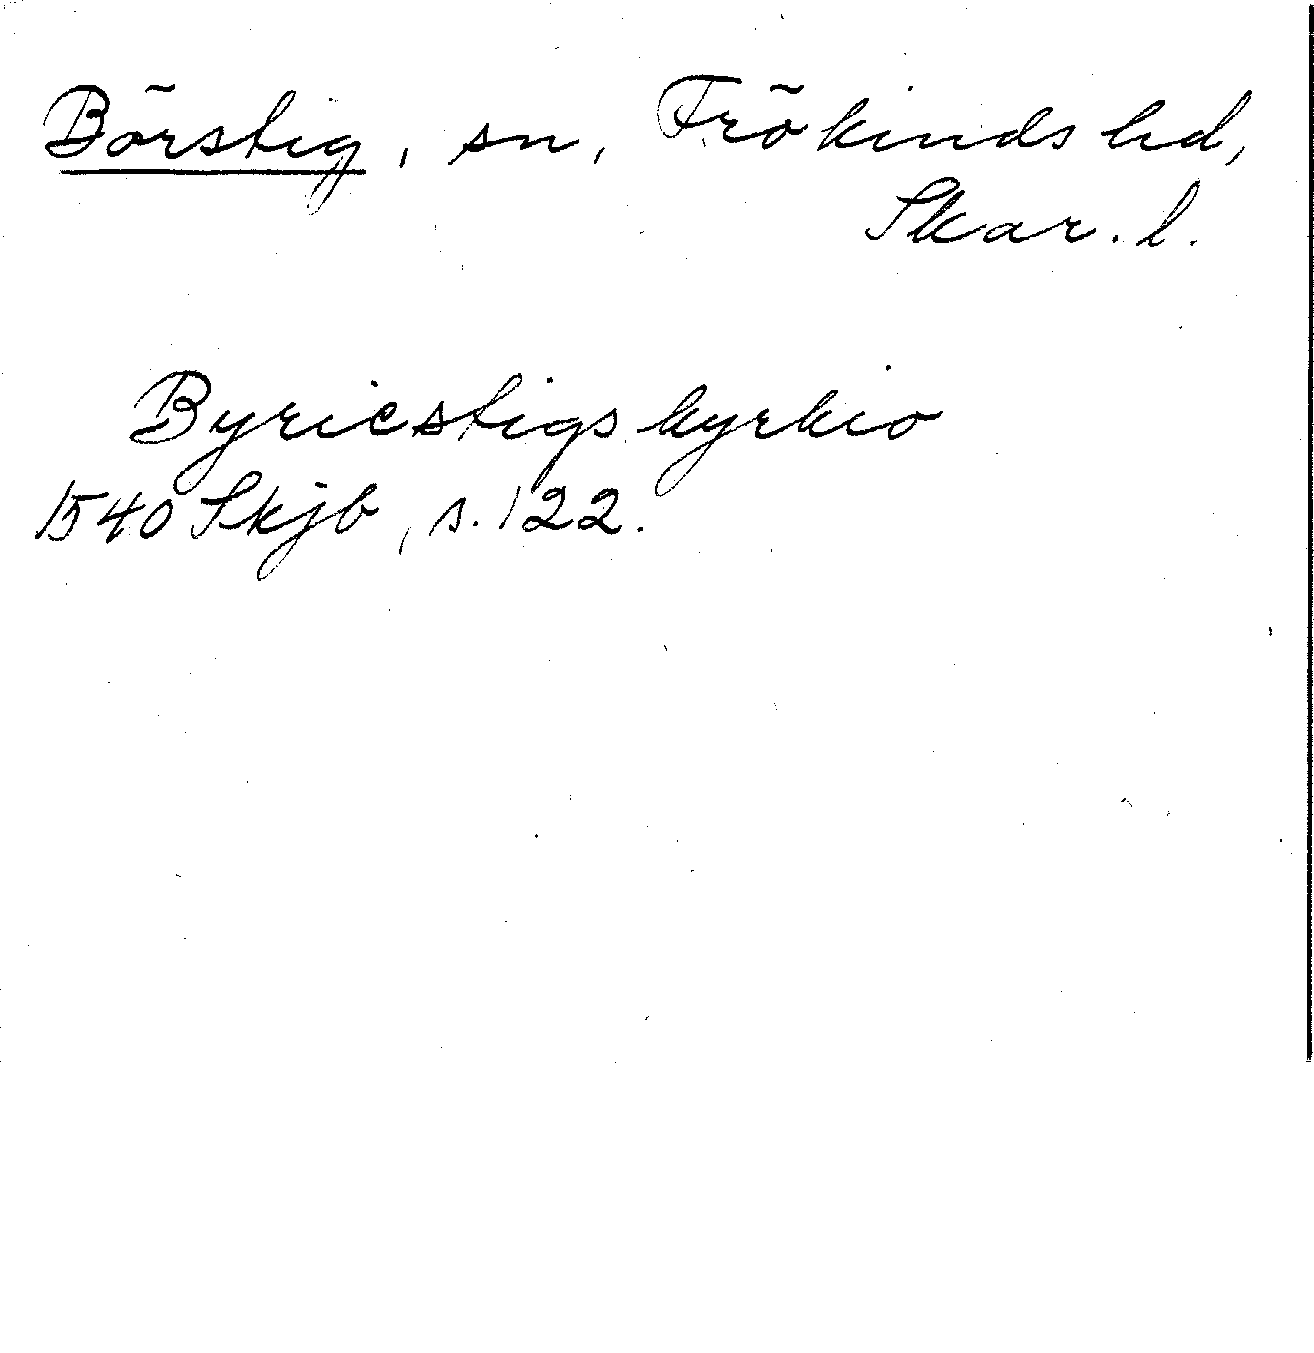 Börstig, sn, Frökinds hd,
Skar. l.
Byriestigs kyrkio
1540 Skjb, s. 122.